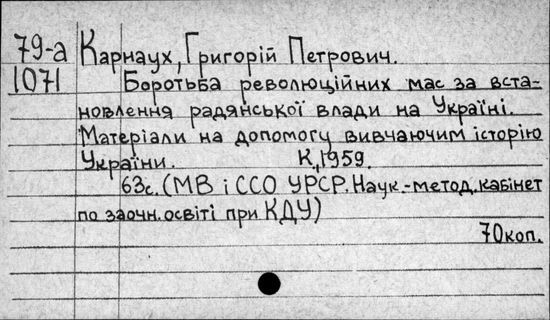 79-а Карнаух, Григорій Петрович.
1071 Боротьба революційних мас за вста-
новлення радянської влади на Україні.
Матеріали на допомогу вивчаючим історію
України. К., 1959.
63с. (МВ і ССО УРСР. Наук.-метод. кабінет
по заочн. освіті при КДУ)
70коп.